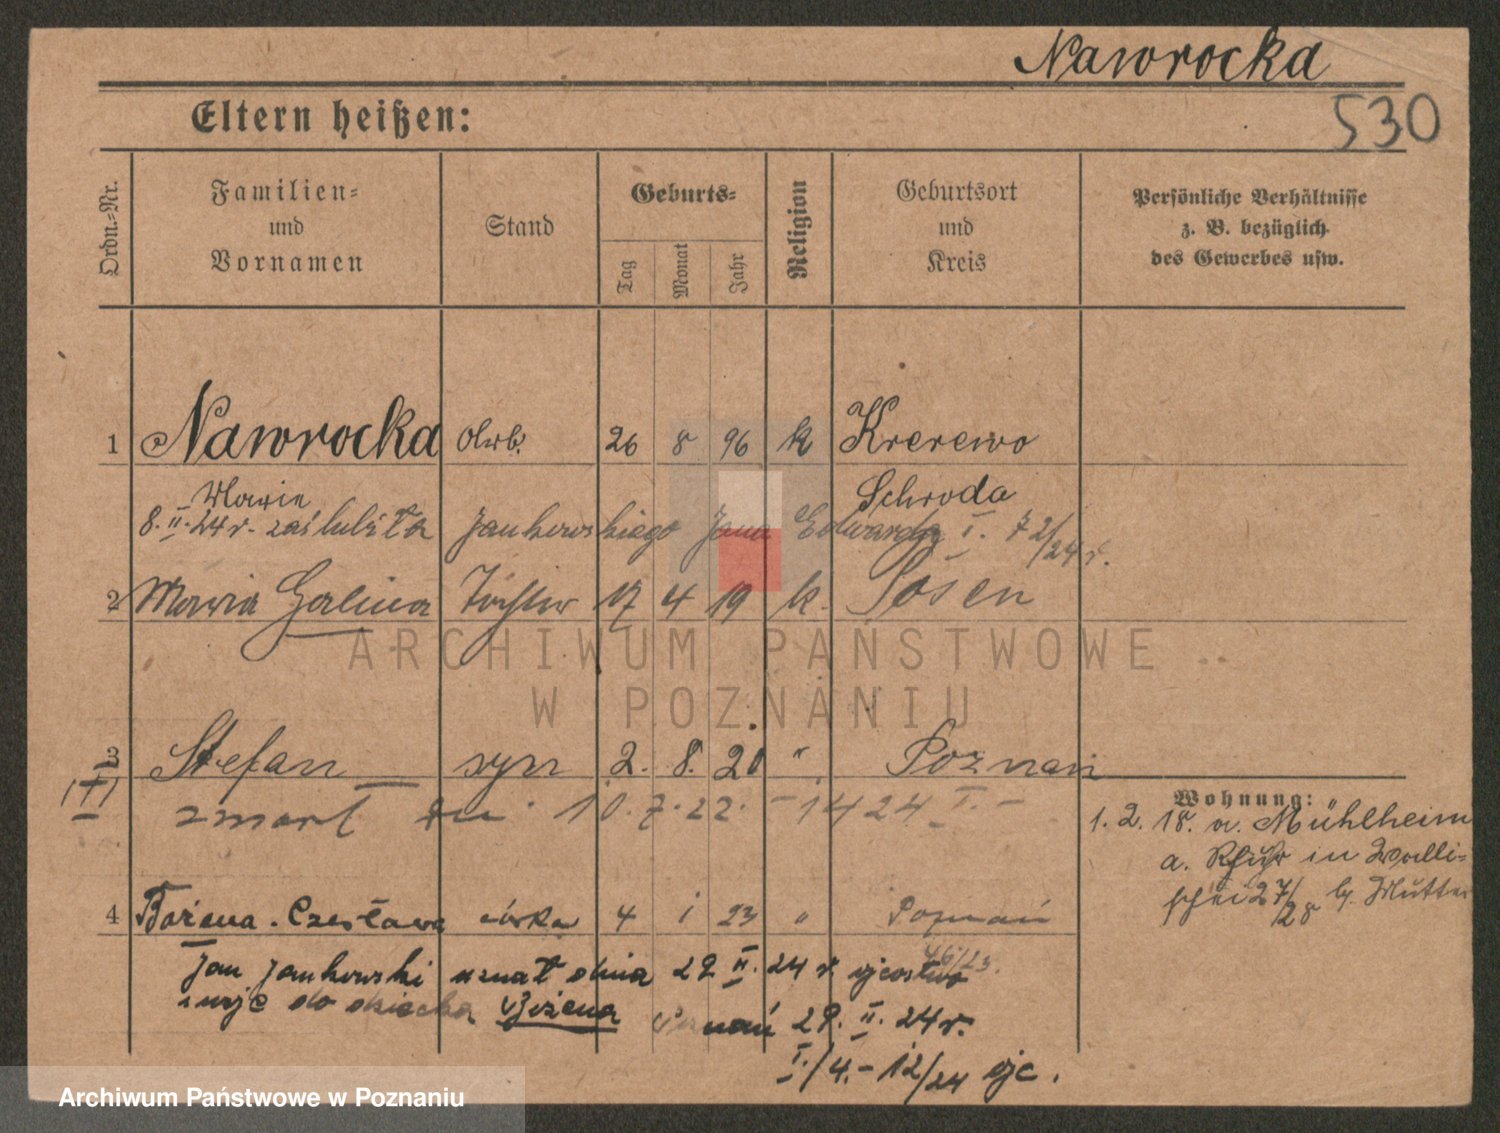 Nawrocka
530
Eltern heißen:
Ordn.-Nr.
Familien-
und
Vornamen
Stand
Geburts-
Tag
Monat
Jahr
Religion
Geburtsort
und
Kreis
Persönliche Verhältnisse
z. B. bezüglich
des Gewerbes usw.
1 Nawrocka Arb. 26 8 96 k Krerewo
Marie Schroda
8. II. 24 r. zaślubiła Jankowskiego Jana Edwarda I. 72/24 r.
2 Maria Halina Tochter 17 4 19 k. Posen
ARCHIWUM PAŃSTWOWE
W POZNANIU
3 Stefan syn 2. 8. 20 " Poznań
zmarł dn. 10. 7. 22. - 1424 I. -
Wohnung:
1. 2. 18. a. Mühlheim
a. Ruhr in Walli-
schei 27/28 b. Mutter
4 Bożena-Czesława córka 4 1 23 " Poznań
46/23.
Jan Jankowski uznał dnia 29 II. 24 r. ojcostwo
swoje do dziecka Bożena Poznań 29. II. 24 r.
I./4.-12/24 ojc.
Archiwum Państwowe w Poznaniu